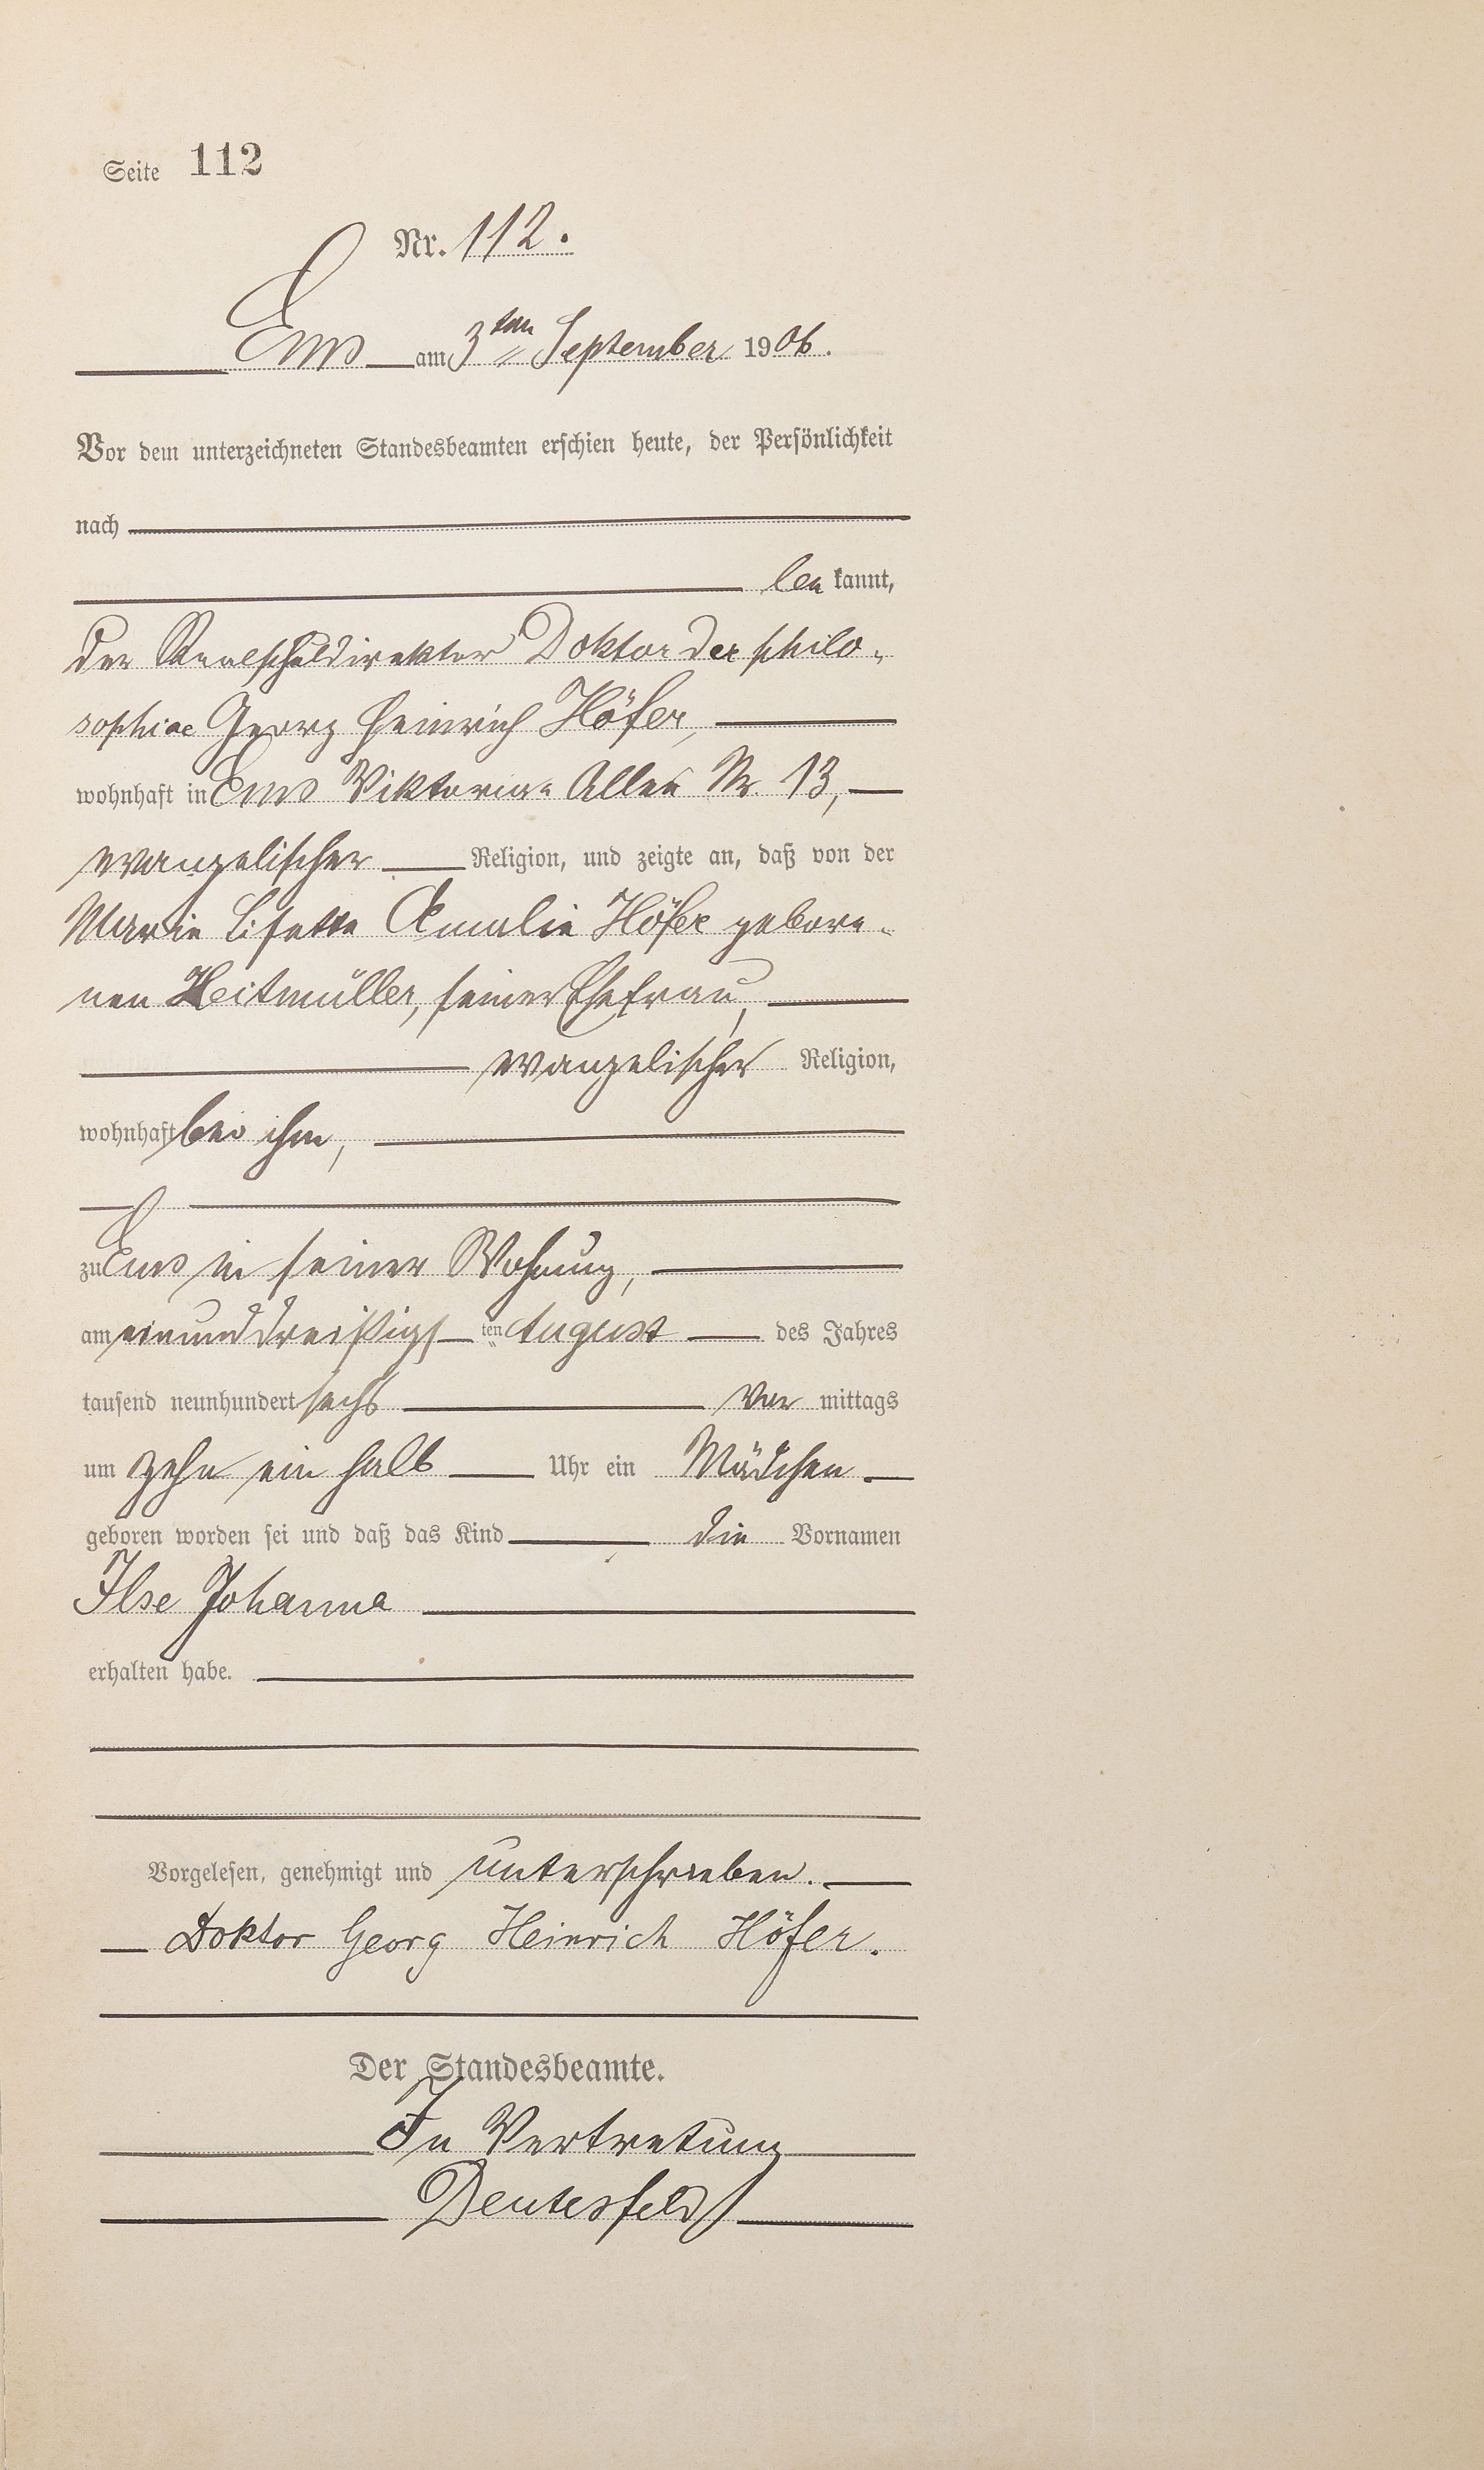 Seite 112
Nr. 112.
Ems am 3ten September 1906.
Vor dem unterzeichneten Standesbeamten erschien heute, der Persönlichkeit
nach
be kannt,
der Realschuldirektor Doktor der philo-
sophiae Georg Heinrich Höfer,
wohnhaft in Ems Viktoria-Allee Nr. 13,
evangelischer Religion, und zeigte an, daß von der
Marie Lisette Amalie Höfer gebore-
nen Heitmüller, seiner Ehefrau,
evangelischer Religion,
wohnhaft bei ihm,
zu Ems in seiner Wohnung,
am einunddreißigs ten August des Jahres
tausend neunhundert sechs Vor mittags
um zehn ein halb Uhr ein Mädchen
geboren worden sei und daß das Kind die Vornamen
Ilse Johanna
erhalten habe.
Vorgelesen, genehmigt und unterschrieben.
Doktor Georg Heinrich Höfer.
Der Standesbeamte.
In Vertretung
Deutesfeld